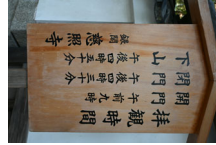 拝観時間
開門 午前九時
閉門 午後四時三十分
下山 午後四時五十分
銀閣 慈照寺